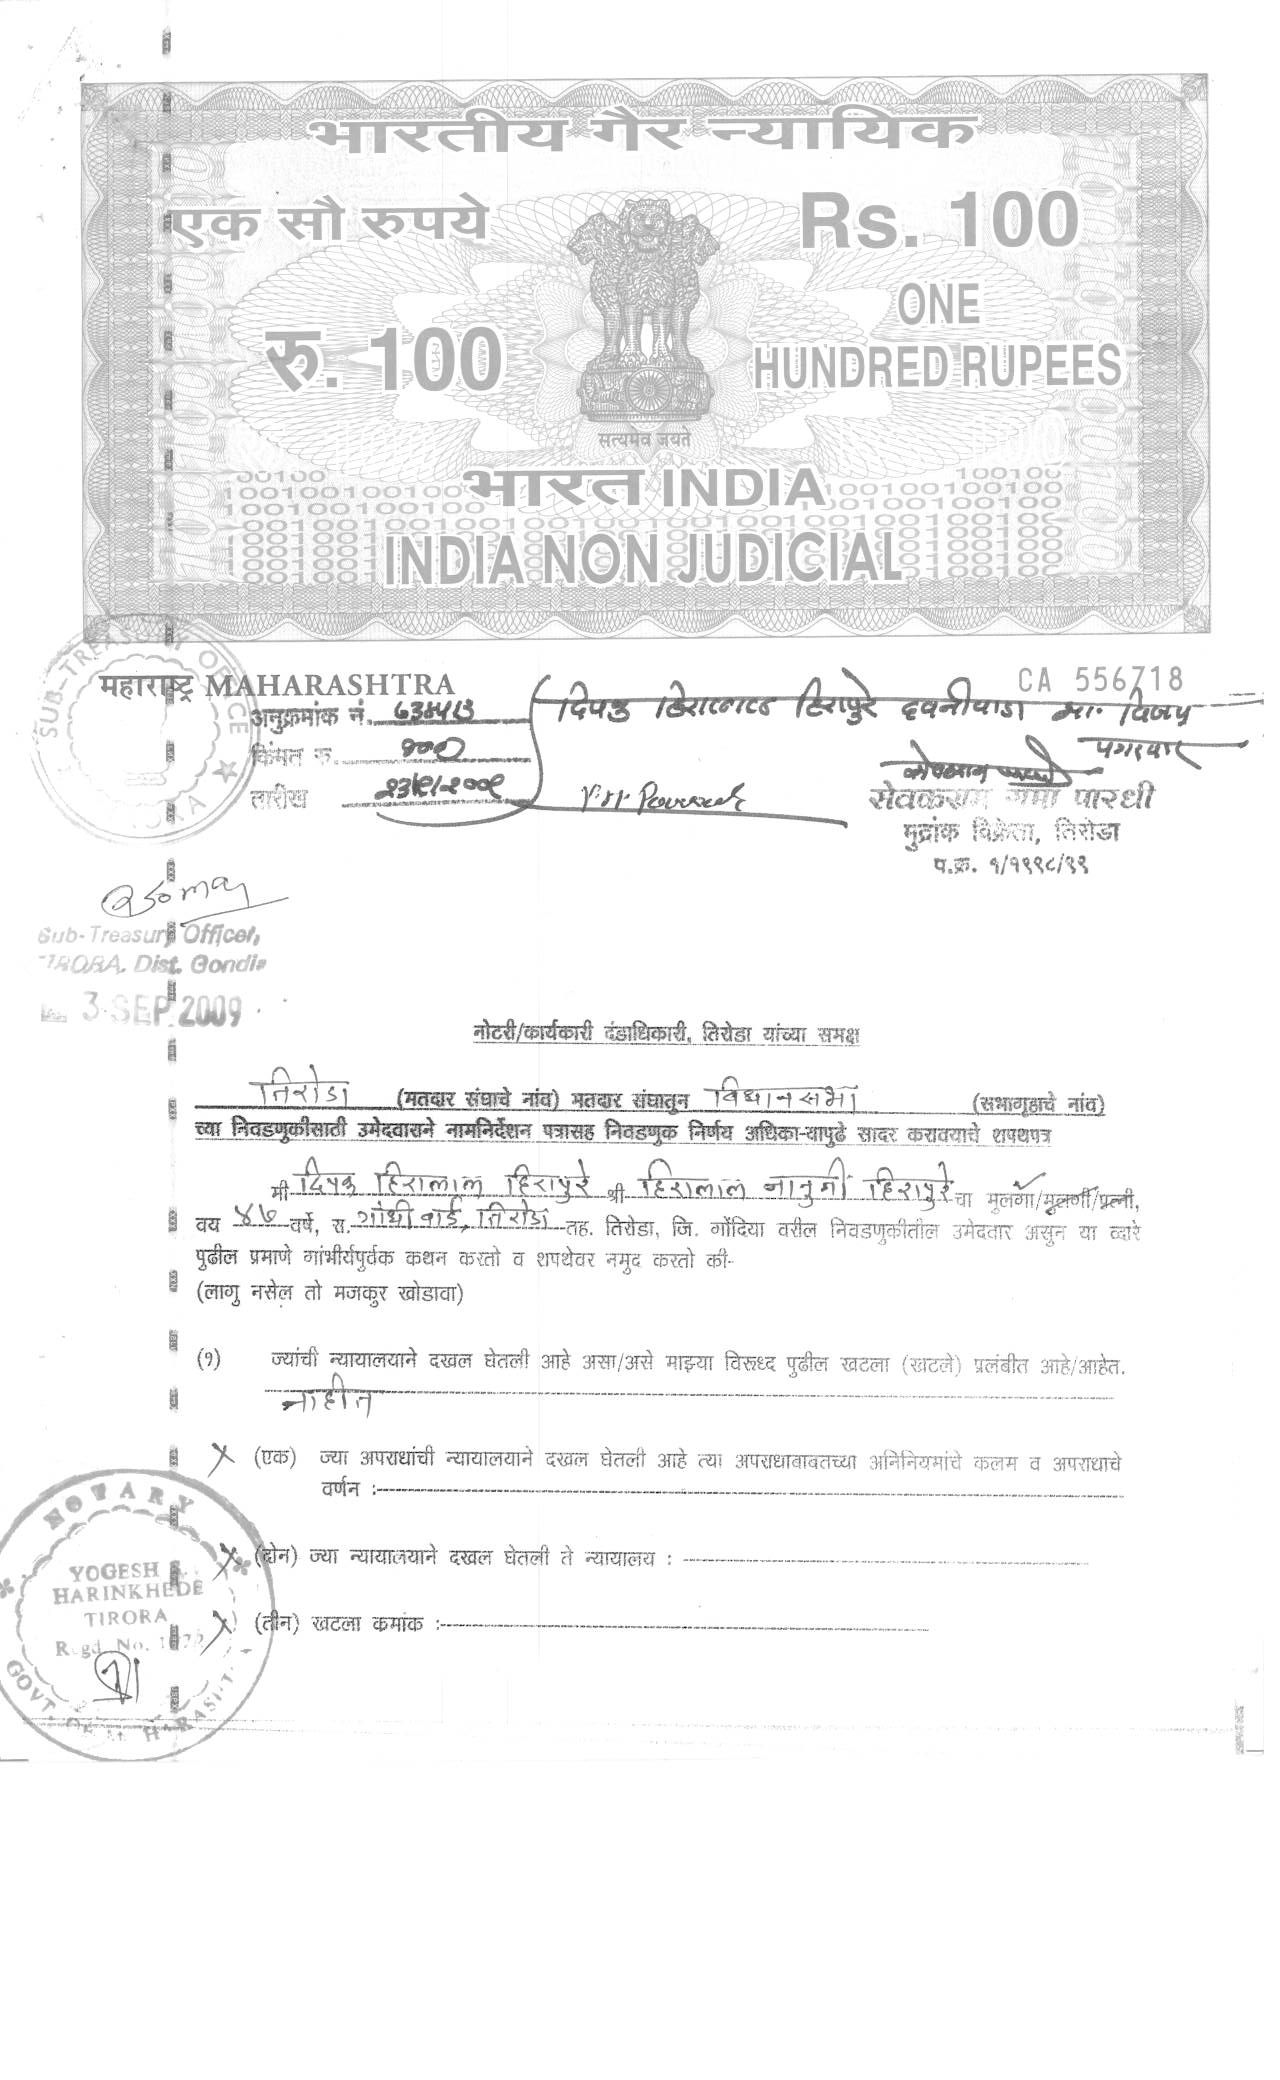 भारतीय गैर न्यायिक
एक सौ रुपये
Rs. 100
रु. 100
ONE
HUNDRED RUPEES
सत्यमेव जयते
भारत INDIA
INDIA NON JUDICIAL
महाराष्ट्र MAHARASHTRA
CA 556718
SUB-TREASURY OFFICE
अनुक्रमांक नं.
दिपक हिरालाल हिरापुरे दवनीवाडा मा. विजय
किंमत रु. १००
तारीख २३/९/२००९
सेवकराम पारधी
मुद्रांक विक्रेता, तिरोडा
प.क्र. १/१९९८/९९
Sub-Treasury Officer,
TIRORA. Dist. Gondia
3 SEP 2009
नोटरी/कार्यकारी दंडाधिकारी, तिरोडा यांच्या समक्ष
तिरोडा (मतदार संघाचे नांव) मतदार संघातुन विधानसभा (सभागृहाचे नांव)
च्या निवडणुकीसाठी उमेदवाराने नामनिर्देशन पत्रासह निवडणुक निर्णय अधिका-यापुढे सादर करावयाचे शपथपत्र
मी दिपक हिरालाल हिरापुरे श्री हिरालाल नानुजी हिरापुरे चा मुलगा/मुलगी/पत्नी,
वय ४७ वर्षे, रा. गांधी वार्ड, तिरोडा तह. तिरोडा, जि. गोंदिया वरील निवडणुकीतील उमेदवार असुन या व्दारे
पुढील प्रमाणे गांभीर्यपुर्वक कथन करतो व शपथेवर नमुद करतो की-
(लागु नसेल तो मजकुर खोडावा)
(१) ज्यांची न्यायालयाने दखल घेतली आहे असा/असे माझ्या विरूध्द पुढील खटला (खटले) प्रलंबीत आहे/आहेत.
नाहीत
(एक) ज्या अपराधांची न्यायालयाने दखल घेतली आहे त्या अपराधाबाबतच्या अनिनियमांचे कलम व अपराधाचे
वर्णन :
(दोन) ज्या न्यायालयाने दखल घेतली ते न्यायालय :
(तीन) खटला कमांक :
NOTARY
YOGESH
HARINKHEDE
TIRORA
Regd. No.
GOVT. OF MAHARASHTRA